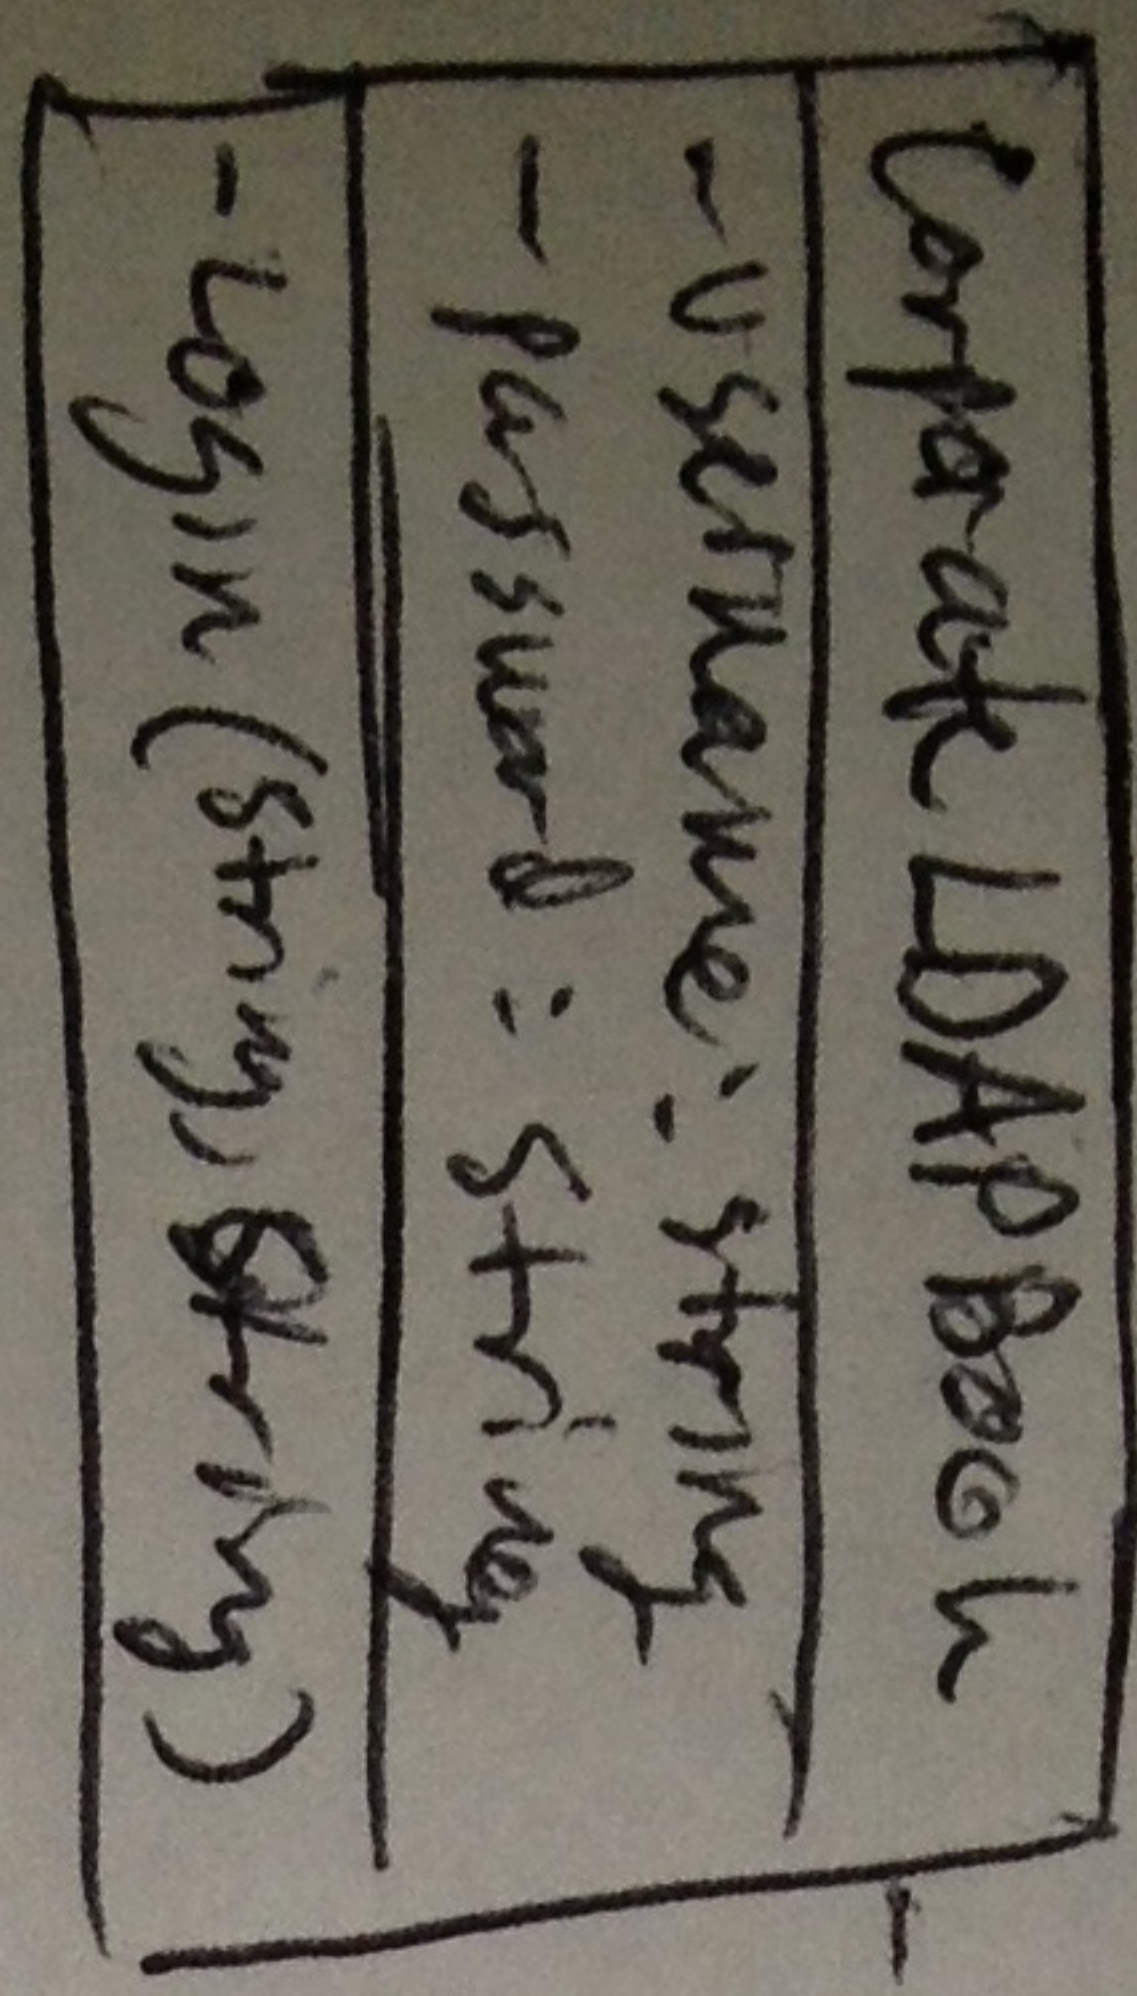 Corporate LDAP Book
- username : string
- password : string
- Login (String, String)